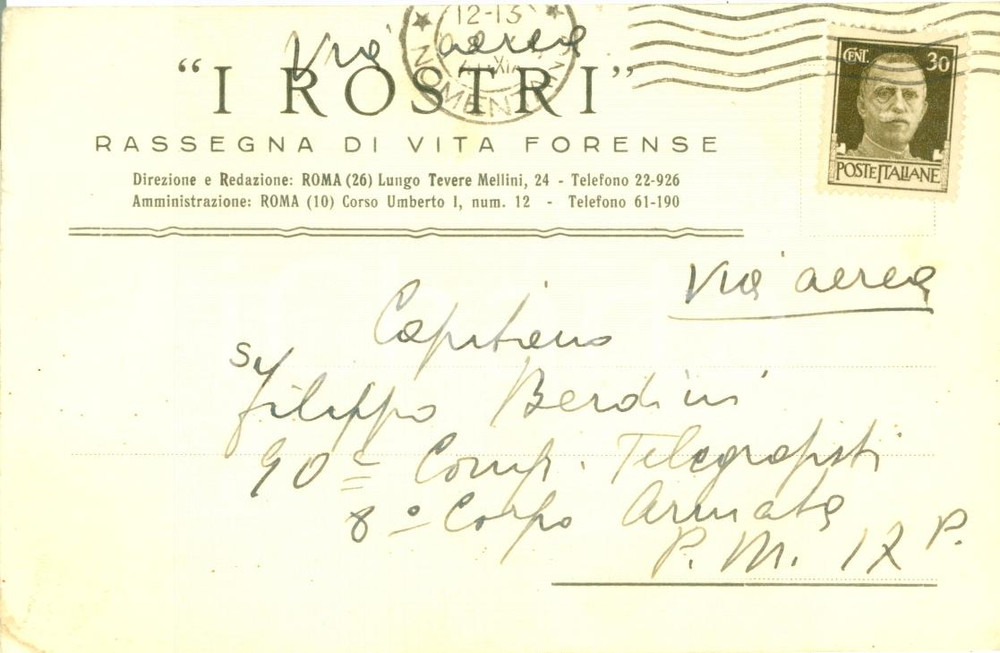 12-13
NOMENTANA
Via aerea
"I ROSTRI"
CENT. 30
POSTE ITALIANE
RASSEGNA DI VITA FORENSE
Direzione e Redazione: ROMA (26) Lungo Tevere Mellini, 24 - Telefono 22-926
Amministrazione: ROMA (10) Corso Umberto I, num. 12 - Telefono 61-190
Via aerea
Capitano
Filippo Berdini
90ª Comp. Telegrafisti
8º Corpo Armata
P. M. 17 P.